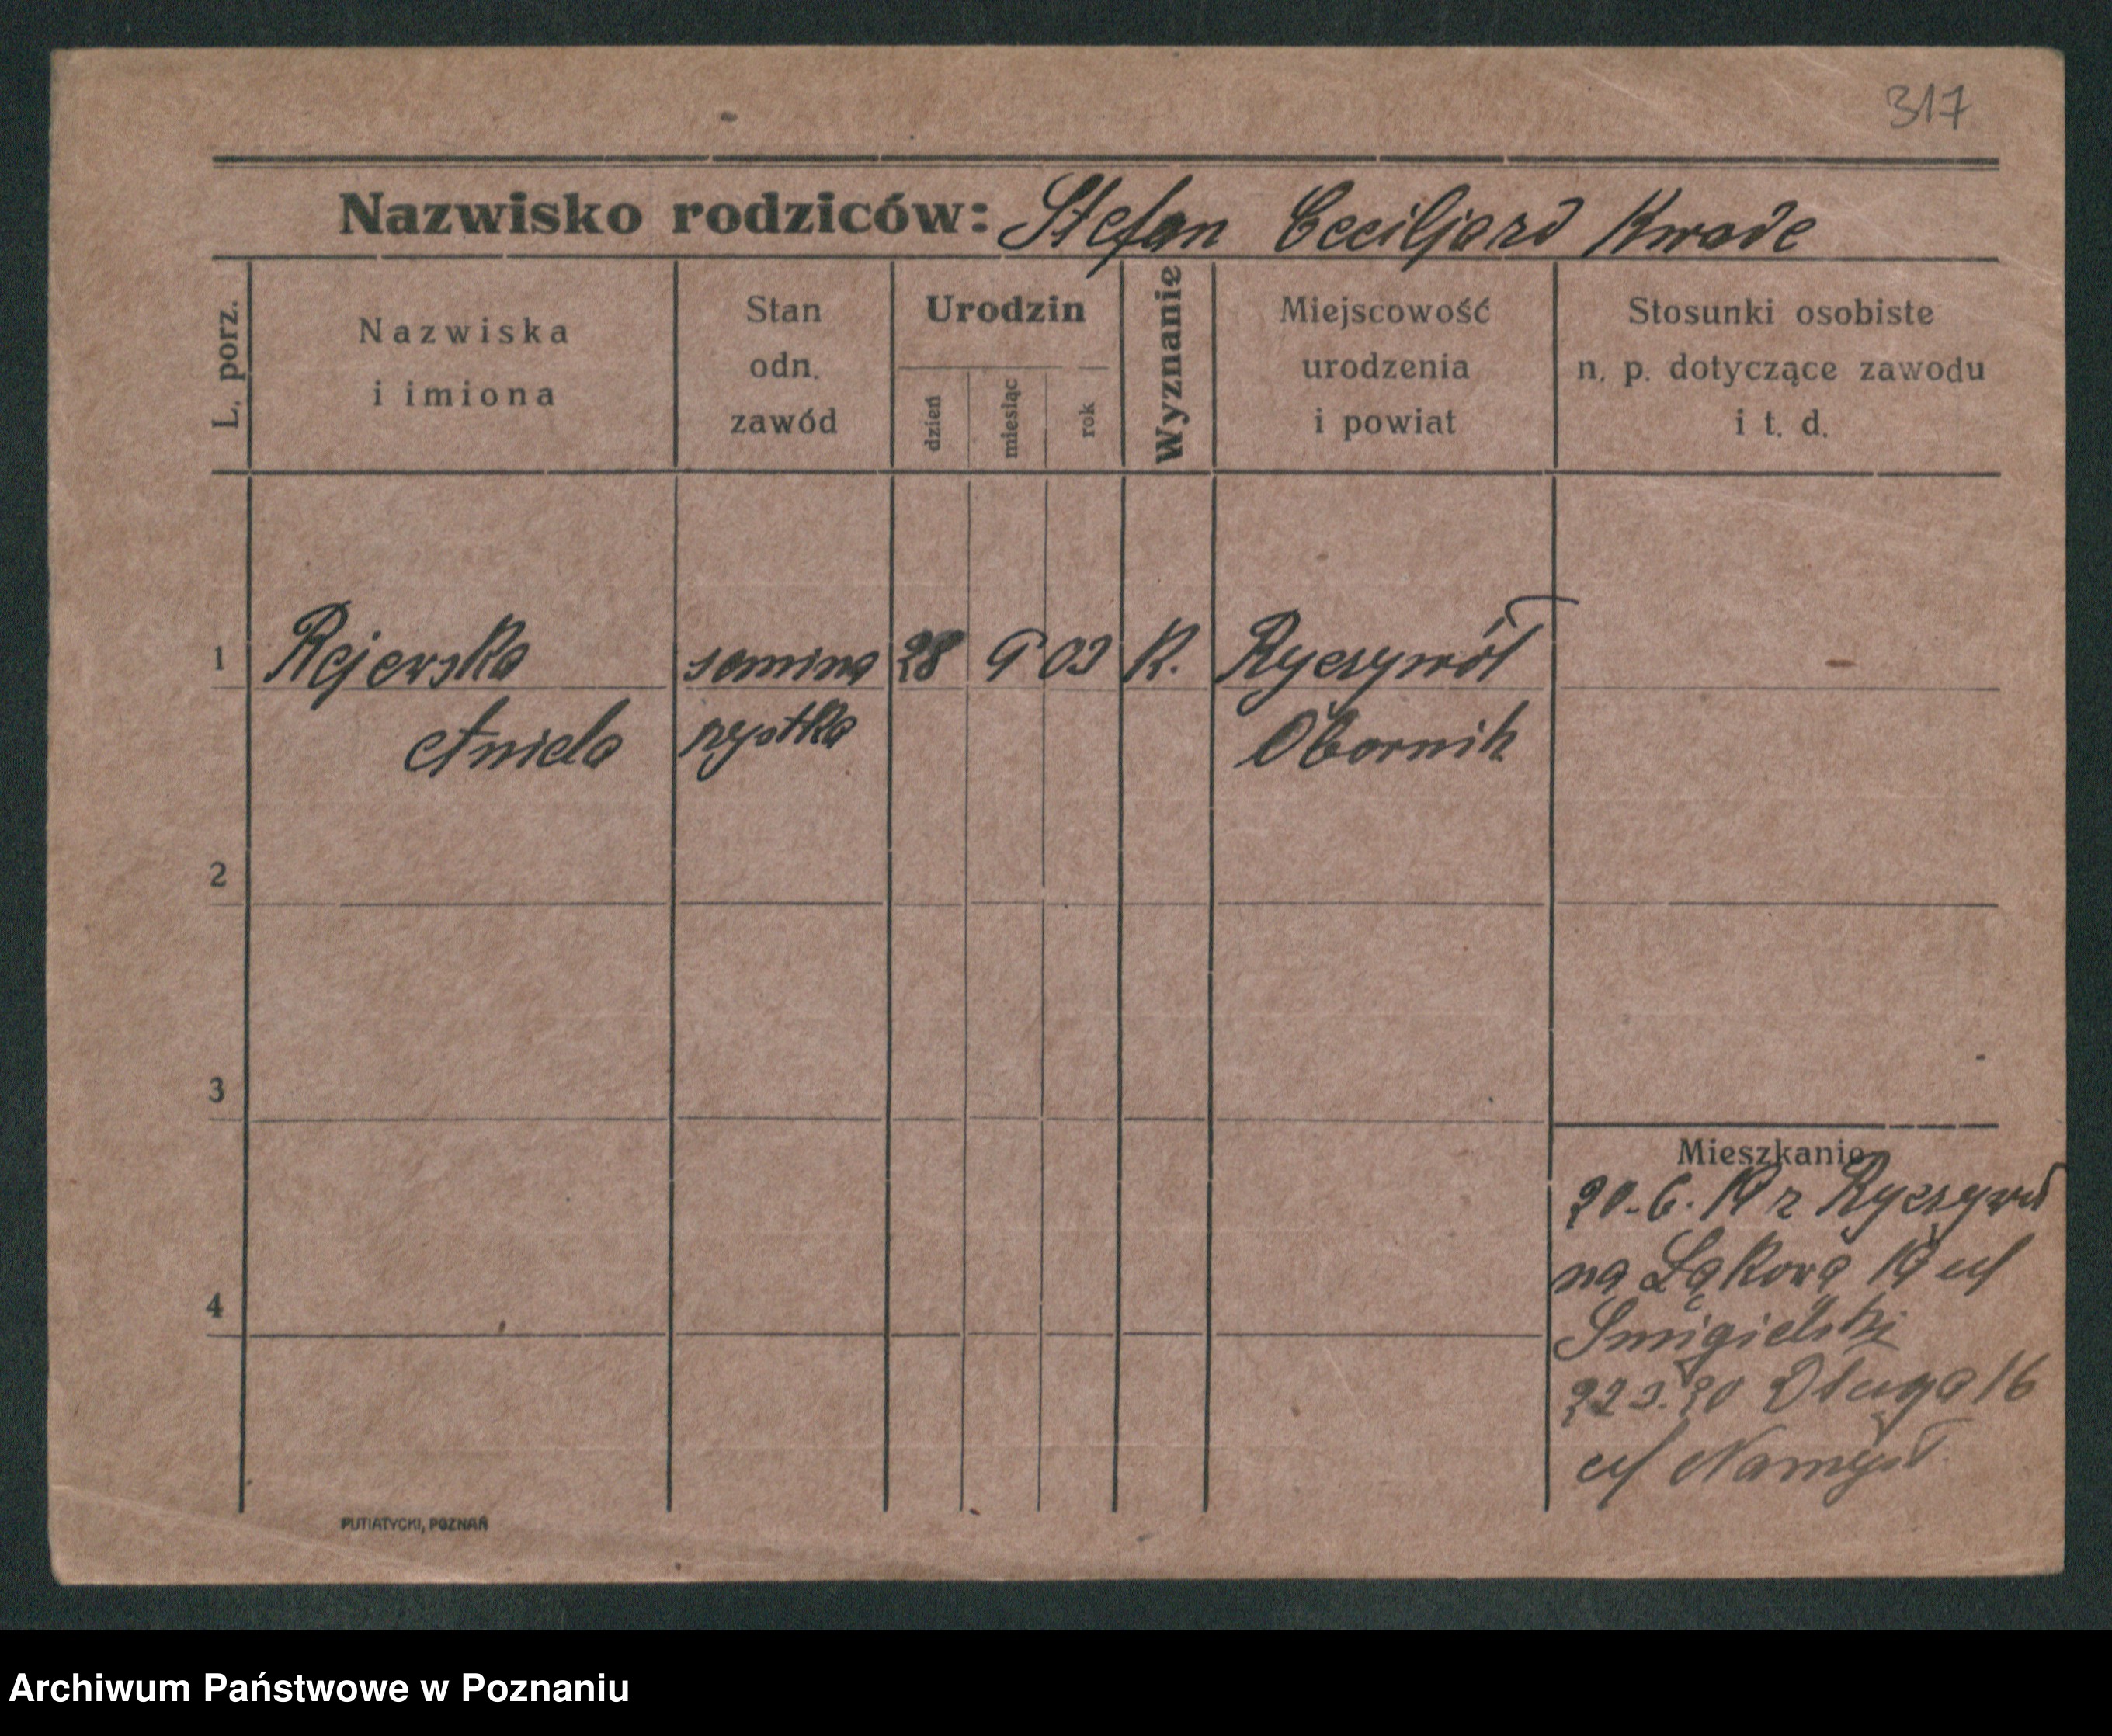 317
Nazwisko rodziców: Stefan Ceciljard Kwade
L. porz.
Nazwiska
i imiona
Stan
odn.
zawód
Urodzin
dzień
miesiąc
rok
Wyznanie
Miejscowość
urodzenia
i powiat
Stosunki osobiste
n. p. dotyczące zawodu
i t. d.
1 Rejewska semina 28 9 03 K. Ryczywół
Aniela rzystka Obornik
2
3
Mieszkanie
20.6.19 z Ryczywół
na Łąkową 19
4
Smigielski
22 3.20 Długa 16
Namysł.
PUTIATYCKI, POZNAŃ
Archiwum Państwowe w Poznaniu